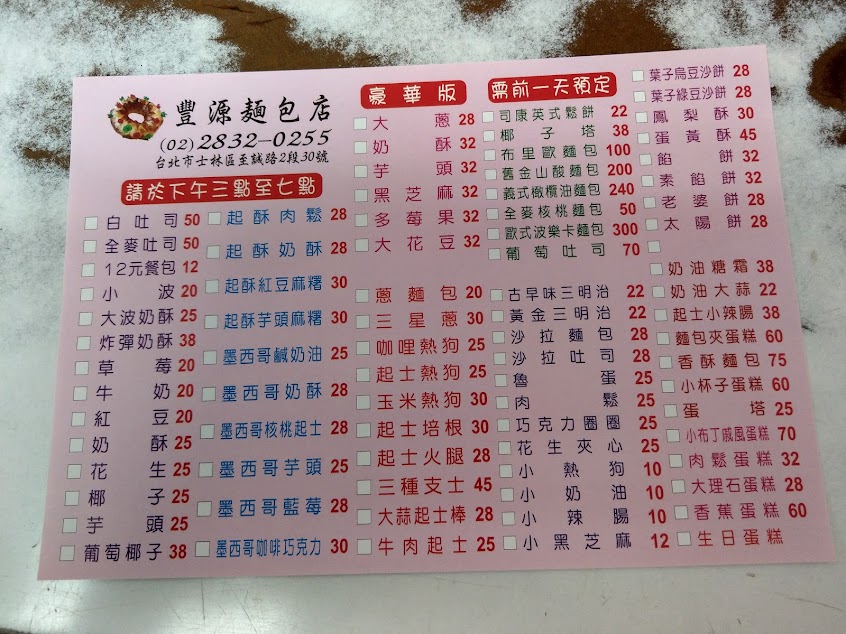 豐源麵包店
(02)2832-0255
台北市士林區至誠路2段30號
請於下午三點至七點
白吐司 50
全麥吐司 50
12元餐包 12
小波 20
大波奶酥 25
炸彈奶酥 38
草莓 20
牛奶 20
紅豆 20
奶酥 25
花生 25
椰子 25
芋頭 25
葡萄椰子 38
起酥肉鬆 28
起酥奶酥 28
起酥紅豆麻糬 30
起酥芋頭麻糬 30
墨西哥鹹奶油 25
墨西哥奶酥 28
墨西哥核桃起士 28
墨西哥芋頭 25
墨西哥藍莓 28
墨西哥咖啡巧克力 30
豪華版
大蔥 28
奶酥 32
芋頭 32
黑芝麻 32
多莓果 32
大花豆 32
蔥麵包 20
三星蔥 30
咖哩熱狗 25
起士熱狗 25
玉米熱狗 30
起士培根 30
起士火腿 28
三種支士 45
大蒜起士棒 28
牛肉起士 25
需前一天預定
司康英式鬆餅 22
椰子塔 38
布里歐麵包 100
舊金山酸麵包 200
義式橄欖油麵包 240
全麥核桃麵包 50
歐式波樂卡麵包 300
葡萄吐司 70
古早味三明治 22
黃金三明治 22
沙拉麵包 28
沙拉吐司 28
魯蛋 25
肉鬆 25
巧克力圈圈 25
花生夾心 25
小熱狗 10
小奶油 10
小辣腸 10
小黑芝麻 12
葉子烏豆沙餅 28
葉子綠豆沙餅 28
鳳梨酥 30
蛋黃酥 45
餡餅 32
素餡餅 32
老婆餅 28
太陽餅 28
奶油糖霜 38
奶油大蒜 22
起士小辣腸 38
麵包夾蛋糕 60
香酥麵包 75
小杯子蛋糕 60
蛋塔 25
小布丁戚風蛋糕 70
肉鬆蛋糕 32
大理石蛋糕 28
香蕉蛋糕 60
生日蛋糕